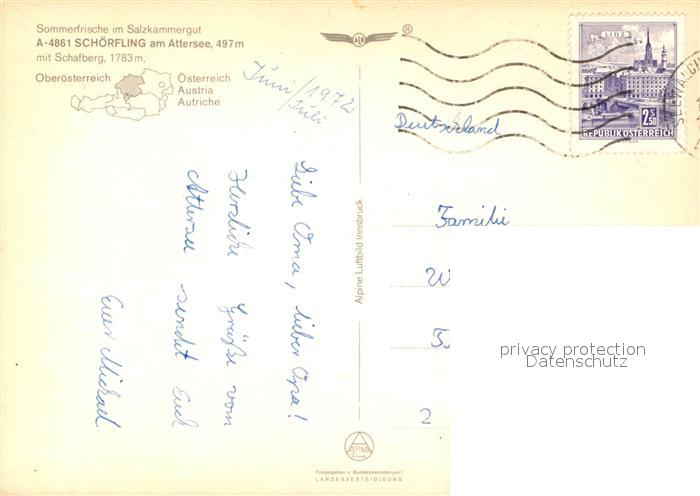 Sommerfrische im Salzkammergut
A-4861 SCHÖRFLING am Attersee, 497m
mit Schafberg, 1783m,
Oberösterreich
Österreich
Austria
Autriche
Juni/1972
/Juli
Liebe Oma, lieber Opa!
Herzliche Grüße vom
Attersee sendet Euch
Euer Michael
Alpine Luftbild Innsbruck
®
LINZ
2.50
REPUBLIK ÖSTERREICH
Deutschland
Familie
W
2
privacy protection
Datenschutz
ALPINE
Freigegeben v. Bundesministerium f.
LANDESVERTEIDIGUNG